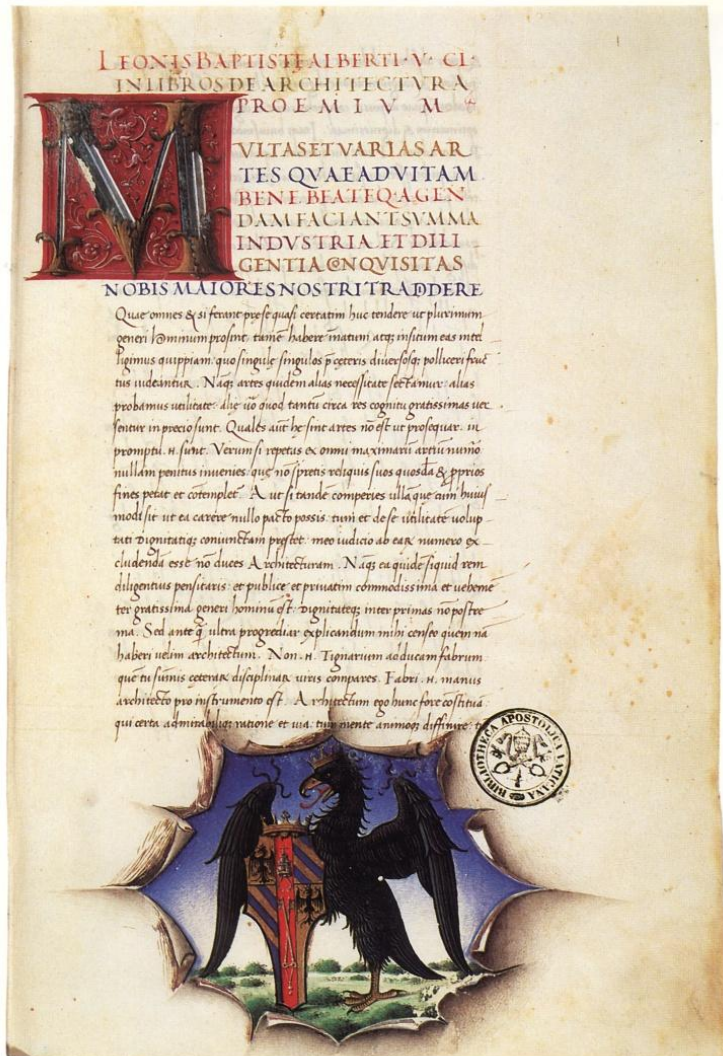 LEONIS BAPTISTE ALBERTI · V · CL ·
IN LIBROS DE ARCHITECTVRA
PROEMIVM
MVLTAS ET VARIAS AR
TES QVAE AD VITAM
BENE BEATEQ· AGEN
DAM FACIANT SVMMA
INDVSTRIA ET DILI
GENTIA CONQVISITAS
NOBIS MAIORES NOSTRI TRADDERE
Quae omnes & si ferant prese quasi certatim huc tendere ut plurimum
generi hominum prosint tamē habere inatum atqꝫ insitum eas intel
ligimus quippiam quo singule singulos p ceteris diversosqꝫ polliceri fruc
tus uideantur. Naqꝫ artes quidem alias necessitate sectamur· alias
probamus utilitate· alie uo quod tantū circa res cognitu gratissimas uer
sentur in precio sunt. Quales aūt he sint artes nō est ut prosequar. in
promptu .n. sunt. Verum si repetas ex omni maximarū artiū numō
nullam penitus invenies que nō spretis reliquis suos quosdā & pprios
fines petat et cōtemplet. Aut si tandē comperies ullā que cum huius
modi sit ut ea carere nullo pacto possis tum et de se utilitatē volup
tati dignitatiqꝫ coniunctam prestet meo iudicio ab eaꝝ numero ex
cludendā esse nō duces Architecturam. Naqꝫ ea quidē siquid rem
diligentius pensitaris et publice et privatim commodissima et uehemē
ter gratissima generi hominū est· dignitateqꝫ inter primas nō postre
ma. Sed ante q̄ ultra progrediar explicandum mihi censeo quem nā
haberi uelim architectum. Non .n. Tignarium adducam fabrum
que tu sumis ceteraꝝ disciplinaꝝ uiris compares. Fabri .n. manus
architecto pro instrumento est. Architectum ego hunc fore cōstituā
qui certa admirabiliqꝫ ratione et uia tum mente animoqꝫ diffinire
BIBLIOTHECA APOSTOLICA VATICANA